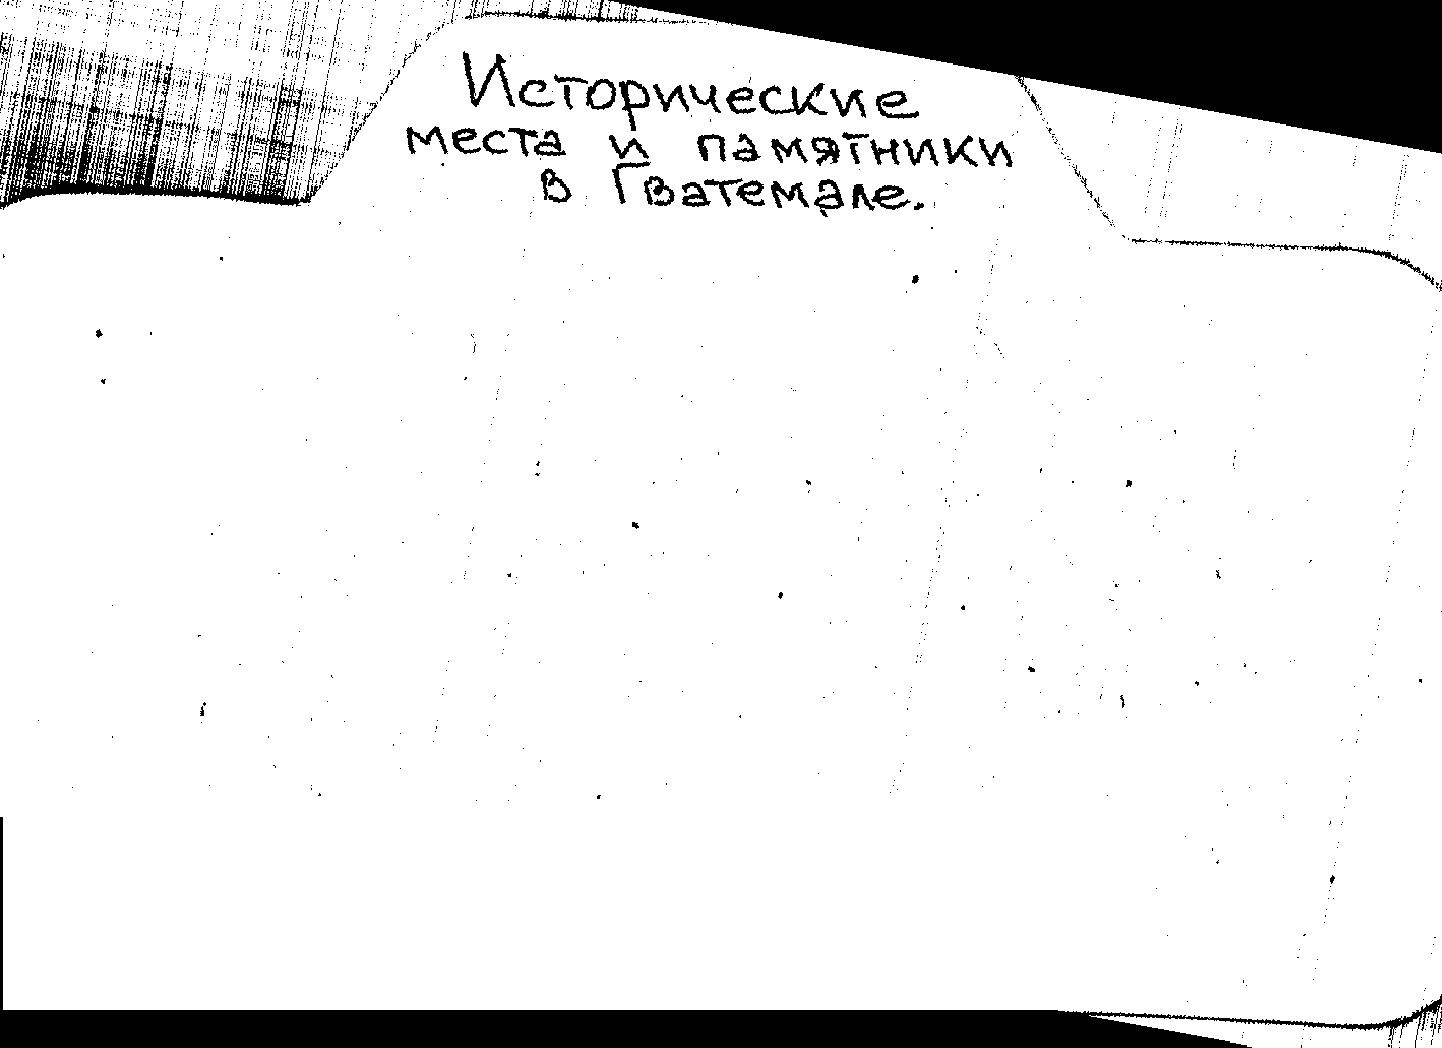 Исторические
места и памятники
в Гватемале.